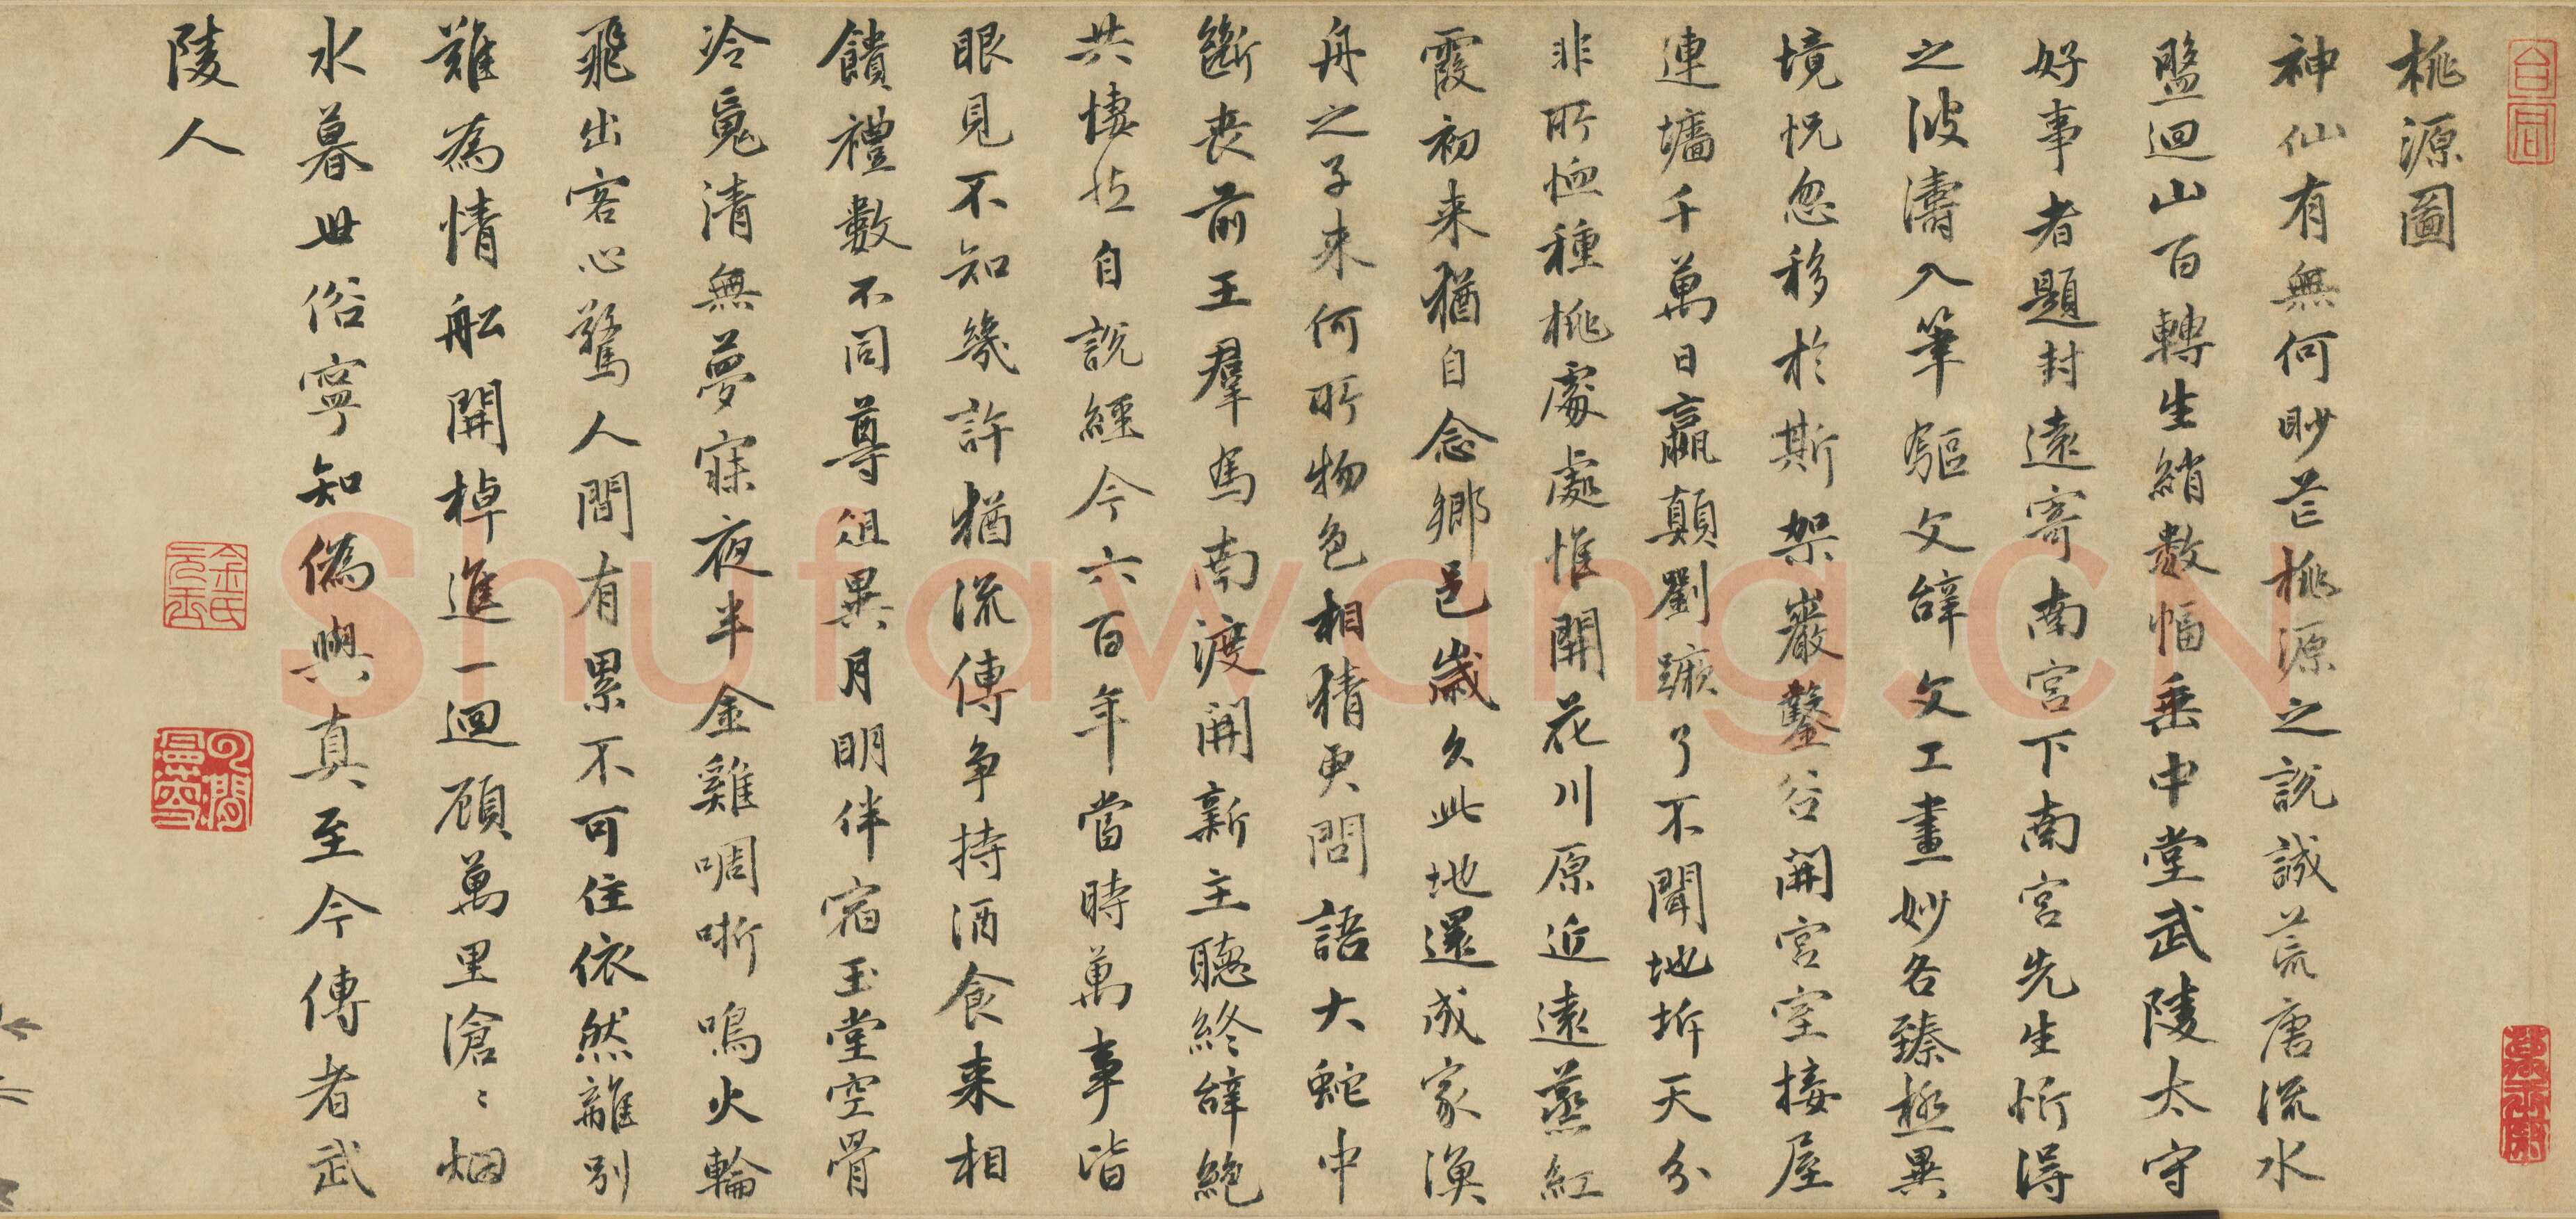 桃源圖
神仙有無何眇茫桃源之說誠荒唐流水
盤迴山百轉生綃數幅垂中堂武陵太守
好事者題封遠寄南宮下南宮先生忻得
之波濤入筆驅文辭文工畫妙各臻極異
境恍忽移於斯架巖鑿谷開宮室接屋
連墻千萬日嬴顛劉蹶了不聞地坼天分
非所恤種桃處處惟開花川原近遠蒸紅
霞初来猶自念鄉邑歲久此地還成家漁
舟之子来何所物色相猜更問語大蛇中
斷喪前王羣馬南渡開新主聽終辭絶
共悽然自說經今六百年當時萬事皆
眼見不知幾許猶流傳争持酒食来相
饋禮數不同尊俎異月明伴宿玉堂空骨
冷魂清無夢寐夜半金雞啁哳鳴火輪
飛出客心驚人間有累不可住依然離別
難為情船開棹進一迴顧萬里滄〻烟
水暮世俗寧知偽與真至今傳者武
陵人
Shufawang.CN